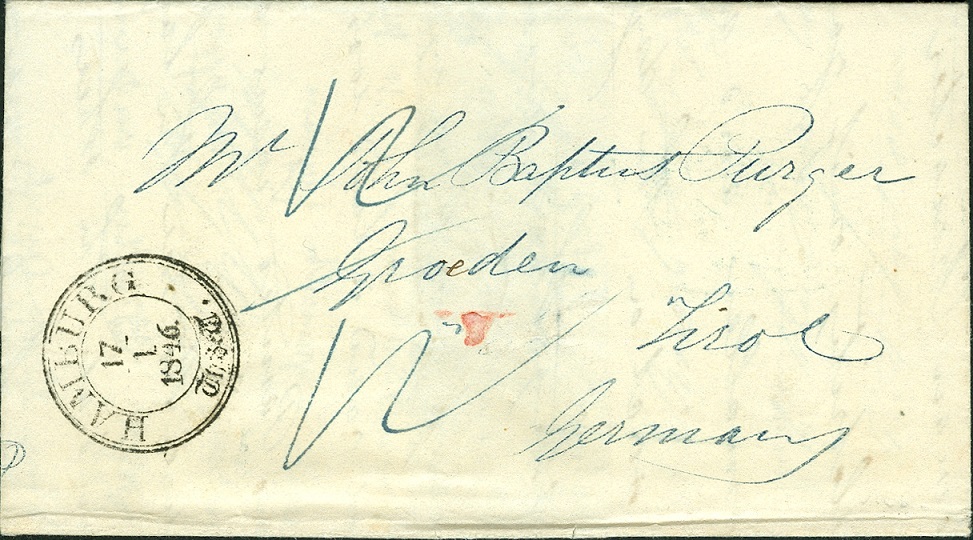 Mr John Baptus Purger
Groeden
Tirol
Germany
HAMBURG
17
1.
1846